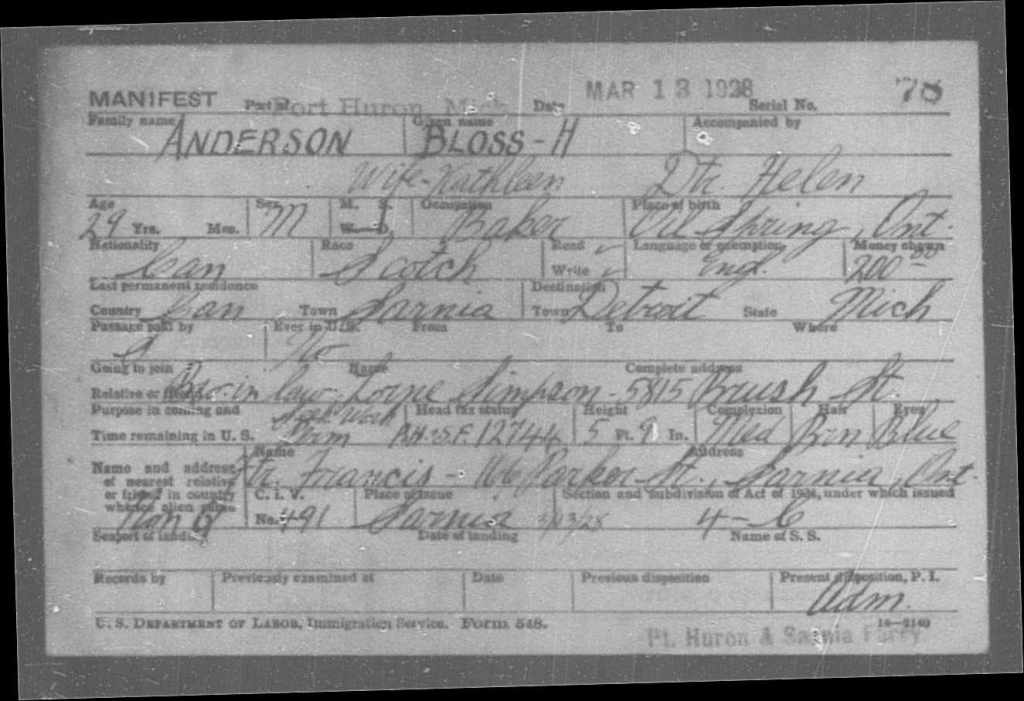 MANIFEST Port of Port Huron, Mich. Date MAR 13 1928 Serial No. 78
Family name ANDERSON Given name BLOSS-H Accompanied by
Wife-Kathleen Dtr. Helen
Age Sex M. S. Occupation Place of birth
29 Yrs. Mos. M W. D. Baker Oil Spring, Ont.
Nationality Race Read Language or exemption Money shown
Can Scotch Write Engl. 200 00
Last permanent residence Destination
Country Can Town Sarnia Town Detroit State Mich
Passage paid by Ever in U.S. From To Where
S No
Going to join Name Complete address
Relative or friend Bro-in law-Lorne Simpson-5815 Brush St.
Purpose in coming and Seek Work Head tax status Height Complexion Hair Eyes
Time remaining in U. S. Perm B.H.S.F. 12744 5 Ft. 9 In. Med Brn Blue
Name Address
Name and address of nearest relative or friend in country whence alien came Fr. Francis-166 Parker St., Sarnia, Ont.
C. I. V. Place of issue Section and subdivision of Act of 1924, under which issued
Non Q No. 491 Sarnia 3/13/28 4-C
Seaport of landing Date of landing Name of S. S.
Records by Previously examined at Date Previous disposition Present disposition, P. I.
Adm.
U. S. DEPARTMENT OF LABOR, Immigration Service. Form 548. 14—2140
Pt. Huron & Sarnia Ferry